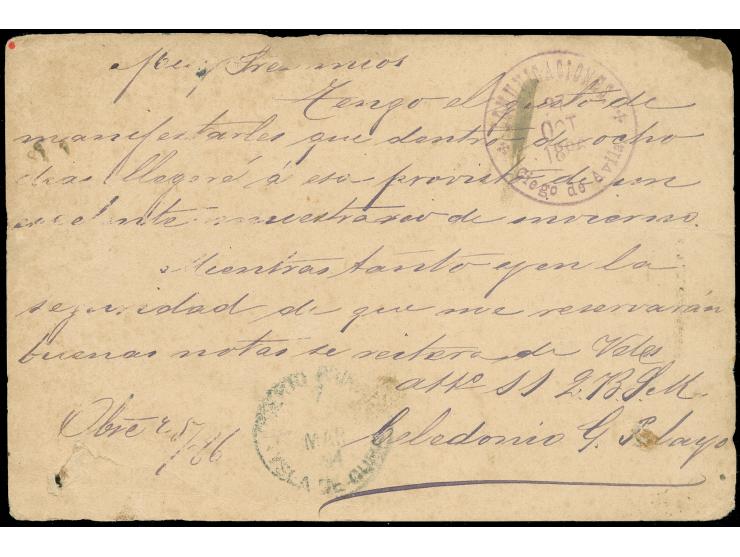 Muy Sres mios
Tengo el gusto de
manifestarles que dentro de ocho
dias llegaré á esa provisto de un
excelente muestrareo de invierno.
Mientras tanto y en la
seguridad de que me reservarán
buenas notas se reitera de Vdes
atto S S Q B S M
Celedonio G. Pelayo
Obre 25/86
COMUNICACIONES
27
OCT
Ciego de Avila
MAR
ISLA DE CUBA